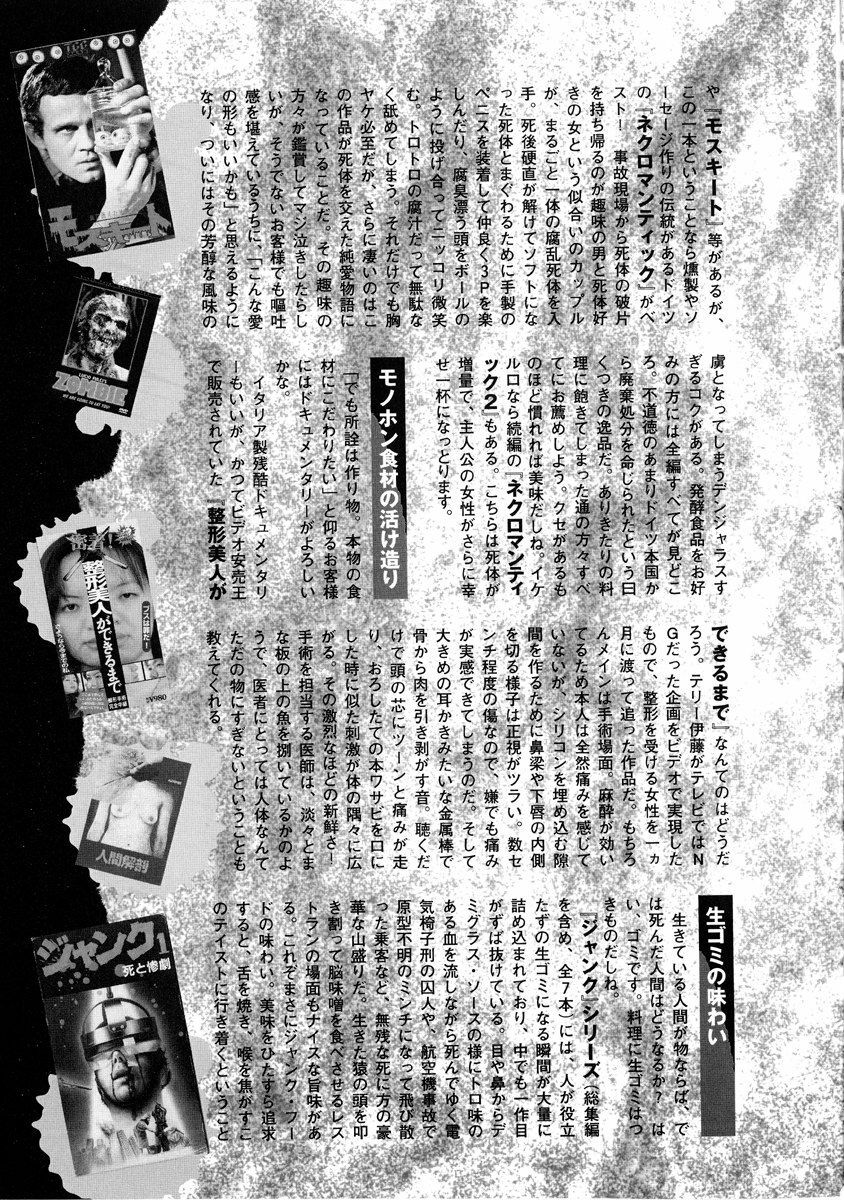 や『モスキート』等があるが、
この一本ということなら燻製やソ
ーセージ作りの伝統があるドイツ
の『ネクロマンティック』がベ
スト！　事故現場から死体の破片
を持ち帰るのが趣味の男と死体好
きの女という似合いのカップル
が、まるごと一体の腐乱死体を入
手。死後硬直が解けてソフトにな
った死体とまぐわるために手製の
ペニスを装着して仲良く３Ｐを楽
しんだり、腐臭漂う頭をボールの
ように投げ合ってニッコリ微笑
む。トロトロの腐汁だって無駄な
く舐めてしまう。それだけでも胸
ヤケ必至だが、さらに凄いのはこ
の作品が死体を交えた純愛物語に
なっていることだ。その趣味の
方々が鑑賞してマジ泣きしたらし
いが、そうでないお客様でも嘔吐
感を堪えているうちに、「こんな愛
の形もいいかも」と思えるように
なり、ついにはその芳醇な風味の
虜となってしまうデンジャラスす
ぎるコクがある。発酵食品をお好
みの方には全編すべてが見どこ
ろ。不道徳のあまりドイツ本国か
ら廃棄処分を命じられたという曰
くつきの逸品だ。ありきたりの料
理に飽きてしまった通の方々すべ
てにお薦めしよう。クセがあるも
のほど慣れれば美味だしね。イケ
ルロなら続編の『ネクロマンティ
ック２』もある。こちらは死体が
増量で、主人公の女性がさらに幸
せ一杯になっとります。
モノホン食材の活け造り
「でも所詮は作り物。本物の食
材にこだわりたい」と仰るお客様
にはドキュメンタリーがよろしい
かな。
イタリア製残酷ドキュメンタリ
ーもいいが、かつてビデオ安売王
で販売されていた『整形美人が
できるまで』なんてのはどうだ
ろう。テリー伊藤がテレビではＮ
Ｇだった企画をビデオで実現した
もので、整形を受ける女性を一ヵ
月に渡って追った作品だ。もちろ
んメインは手術場面。麻酔が効い
てるため本人は全然痛みを感じて
いないが、シリコンを埋め込む隙
間を作るために鼻梁や下唇の内側
を切る様子は正視がツラい。数セ
ンチ程度の傷なので、嫌でも痛み
が実感できてしまうのだ。そして
大きめの耳かきみたいな金属棒で
骨から肉を引き剥がす音。聴くだ
けで頭の芯にツーンと痛みが走
り、おろしたての本ワサビを口に
した時に似た刺激が体の隅々に広
がる。その激烈なほどの新鮮さ！
手術を担当する医師は、淡々とま
な板の上の魚を捌いているかのよ
うで、医者にとっては人体なんて
ただの物にすぎないということも
教えてくれる。
生ゴミの味わい
生きている人間が物ならば、で
は死んだ人間はどうなるか？　は
い、ゴミです。料理に生ゴミはつ
きものだしね。
『ジャンク』シリーズ（総集編
を含め、全７本）には、人が役立
たずの生ゴミになる瞬間が大量に
詰め込まれており、中でも一作目
がずば抜けている。目や鼻からデ
ミグラス・ソースの様にトロ味の
ある血を流しながら死んでゆく電
気椅子刑の囚人や、航空機事故で
原型不明のミンチになって飛び散
った乗客など、無残な死に方の豪
華な山盛りだ。生きた猿の頭を叩
き割って脳味噌を食べさせるレス
トランの場面もナイスな旨味があ
る。これぞまさにジャンク・フー
ドの味わい。美味をひたすら追求
すると、舌を焼き、喉を焦がすこ
のテイストに行き着くということ
モスキート
ZOMBIE
WE ARE GOING TO EAT YOU!
整形美人ができるまで
ブスは罪だ！
¥980
人間解剖
ジャンク1
死と惨劇